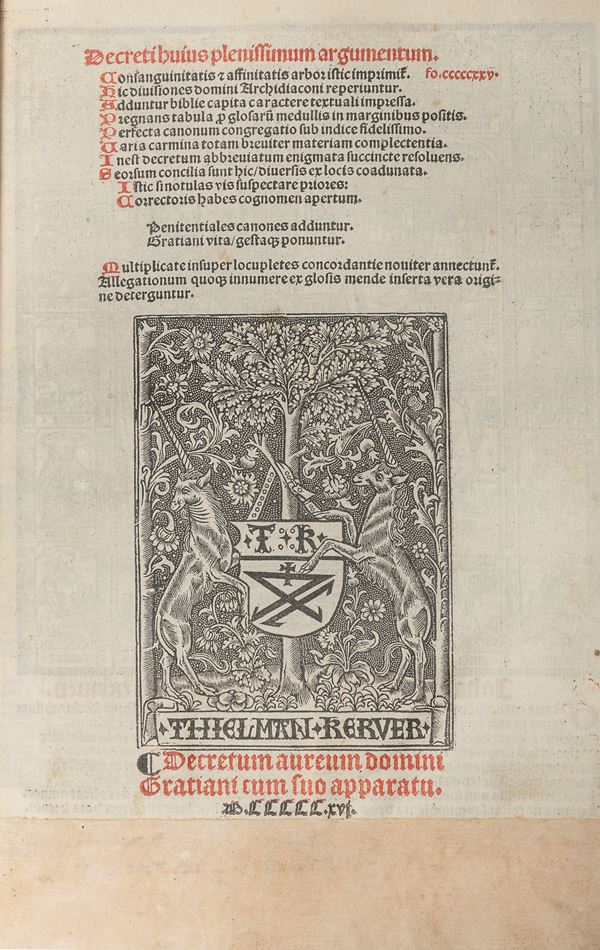 Decreti huius plenissimum argumentum.
Consanguinitatis ⁊ affinitatis arbor istic imprimit᷑. fo.cccccxxv.
Hic diuisiones domini Archidiaconi reperiuntur.
Adduntur biblie capita caractere textuali impressa.
Pregnans tabula ꝓ glosarū medullis in marginibus positis.
Perfecta canonum congregatio sub indice fidelissimo.
Uaria carmina totam breuiter materiam complectentia.
Inest decretum abbreuiatum enigmata succincte resoluens.
Seorsum concilia sunt hic/diuersis ex locis coadunata.
Istic si notulas vis suspectare priores:
Correctoris habes cognomen apertum.
Penitentiales canones adduntur.
Gratiani vita/gestaqꝫ ponuntur.
Multiplicate insuper locupletes concordantie nouiter annectunt᷑.
Allegationum quoqꝫ innumere ex glosis mende inserta vera origi-
ne deterguntur.
T R
THIELMAN KERVER
Decretum aureum domini
Gratiani cum suo apparatu.
M.CCCCC.xvj.